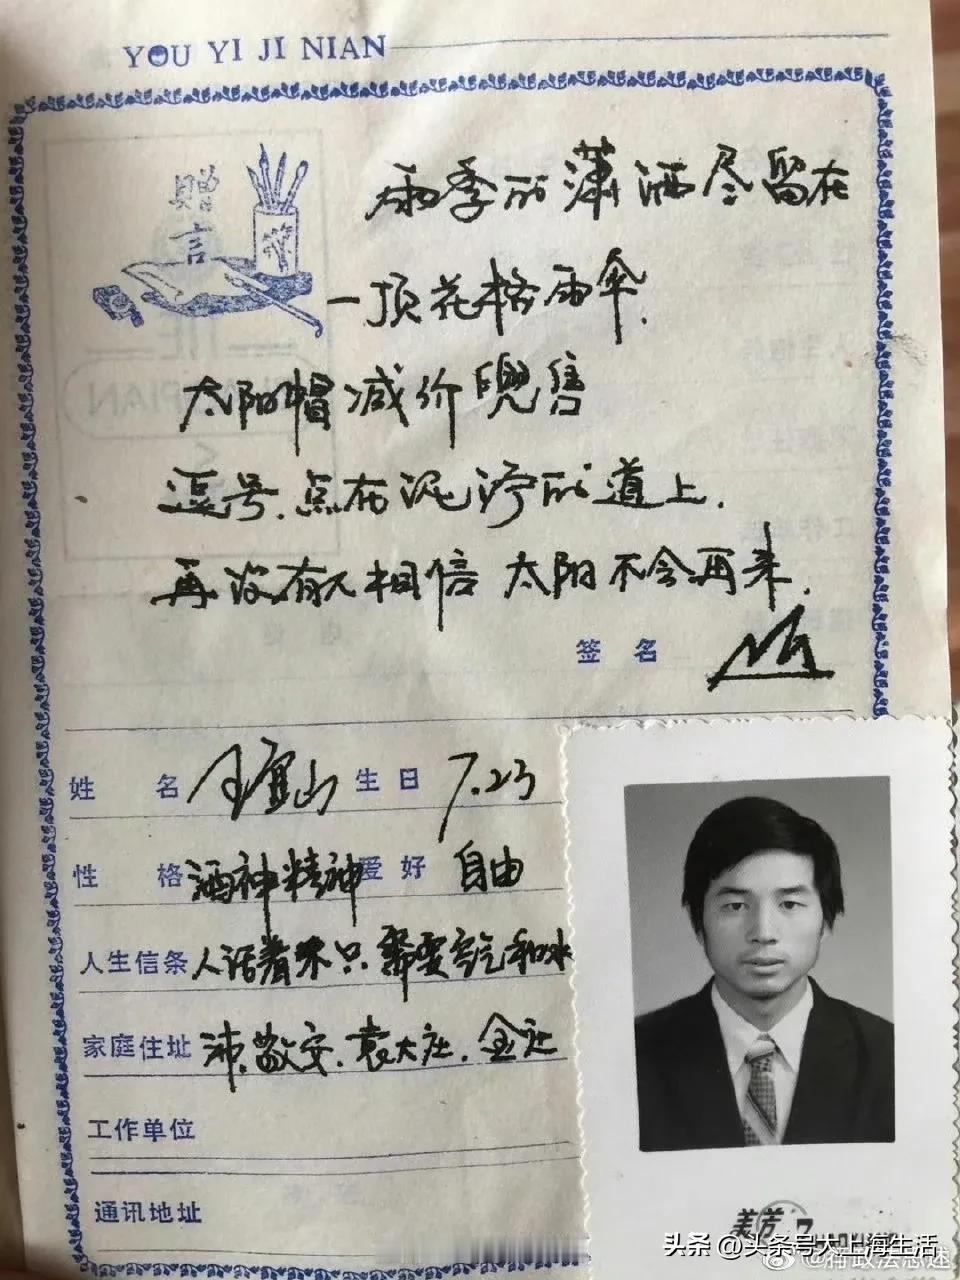 YOU YI JI NIAN
赠言
雨季的潇洒尽留在
一顶花格雨伞.
太阳帽减价兜售
逗号.点在泥泞的道上.
再没有人相信 太阳不会再来.
签名
姓名 山 生日 7.23
性格 酒神精神 爱好 自由
人生信条 人活着来只需要空气和水
家庭住址 沛.敬安.袁大庄.金庄
工作单位
通讯地址
美芳
头条 @头条号大上海生活